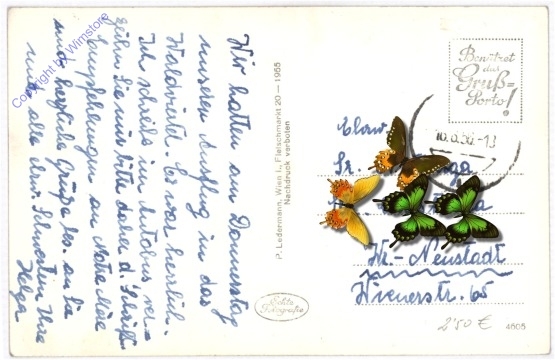 Wir hatten am Donnerstag
unseren Ausflug in das
Waldviertel. Es war herrlich.
Ich schreibe im Autobus, ver-
zeihen Sie mir bitte daher d. Schrift.
Empfehlungen an Notre Mère
und herzliche Grüße bes. an Sie
und alle ehrw. Schwestern Ihre
Helga
Copyright by Wimstore
P. Ledermann, Wien I., Fleischmarkt 20 — 1955
Nachdruck verboten
Echte
Fotografie
Benützet
das
Gruß=
Porto!
10.6.56.-13
Ehrw.
Sr.
Wr.-Neustadt
Wienerstr. 65
2'50 €
4605